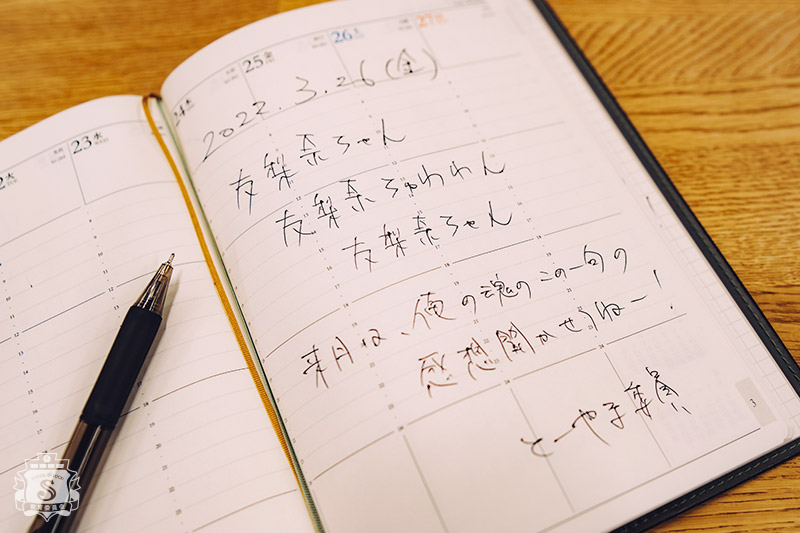 22火
23水
24木
25金
26土
27日
2022.3.26(金)
友梨奈ちゃん
友梨奈ちゃわわん
友梨奈ちゃん
来月は、俺の魂のこの一句の
感想聞かせてねー!
とーやま委員
3
S